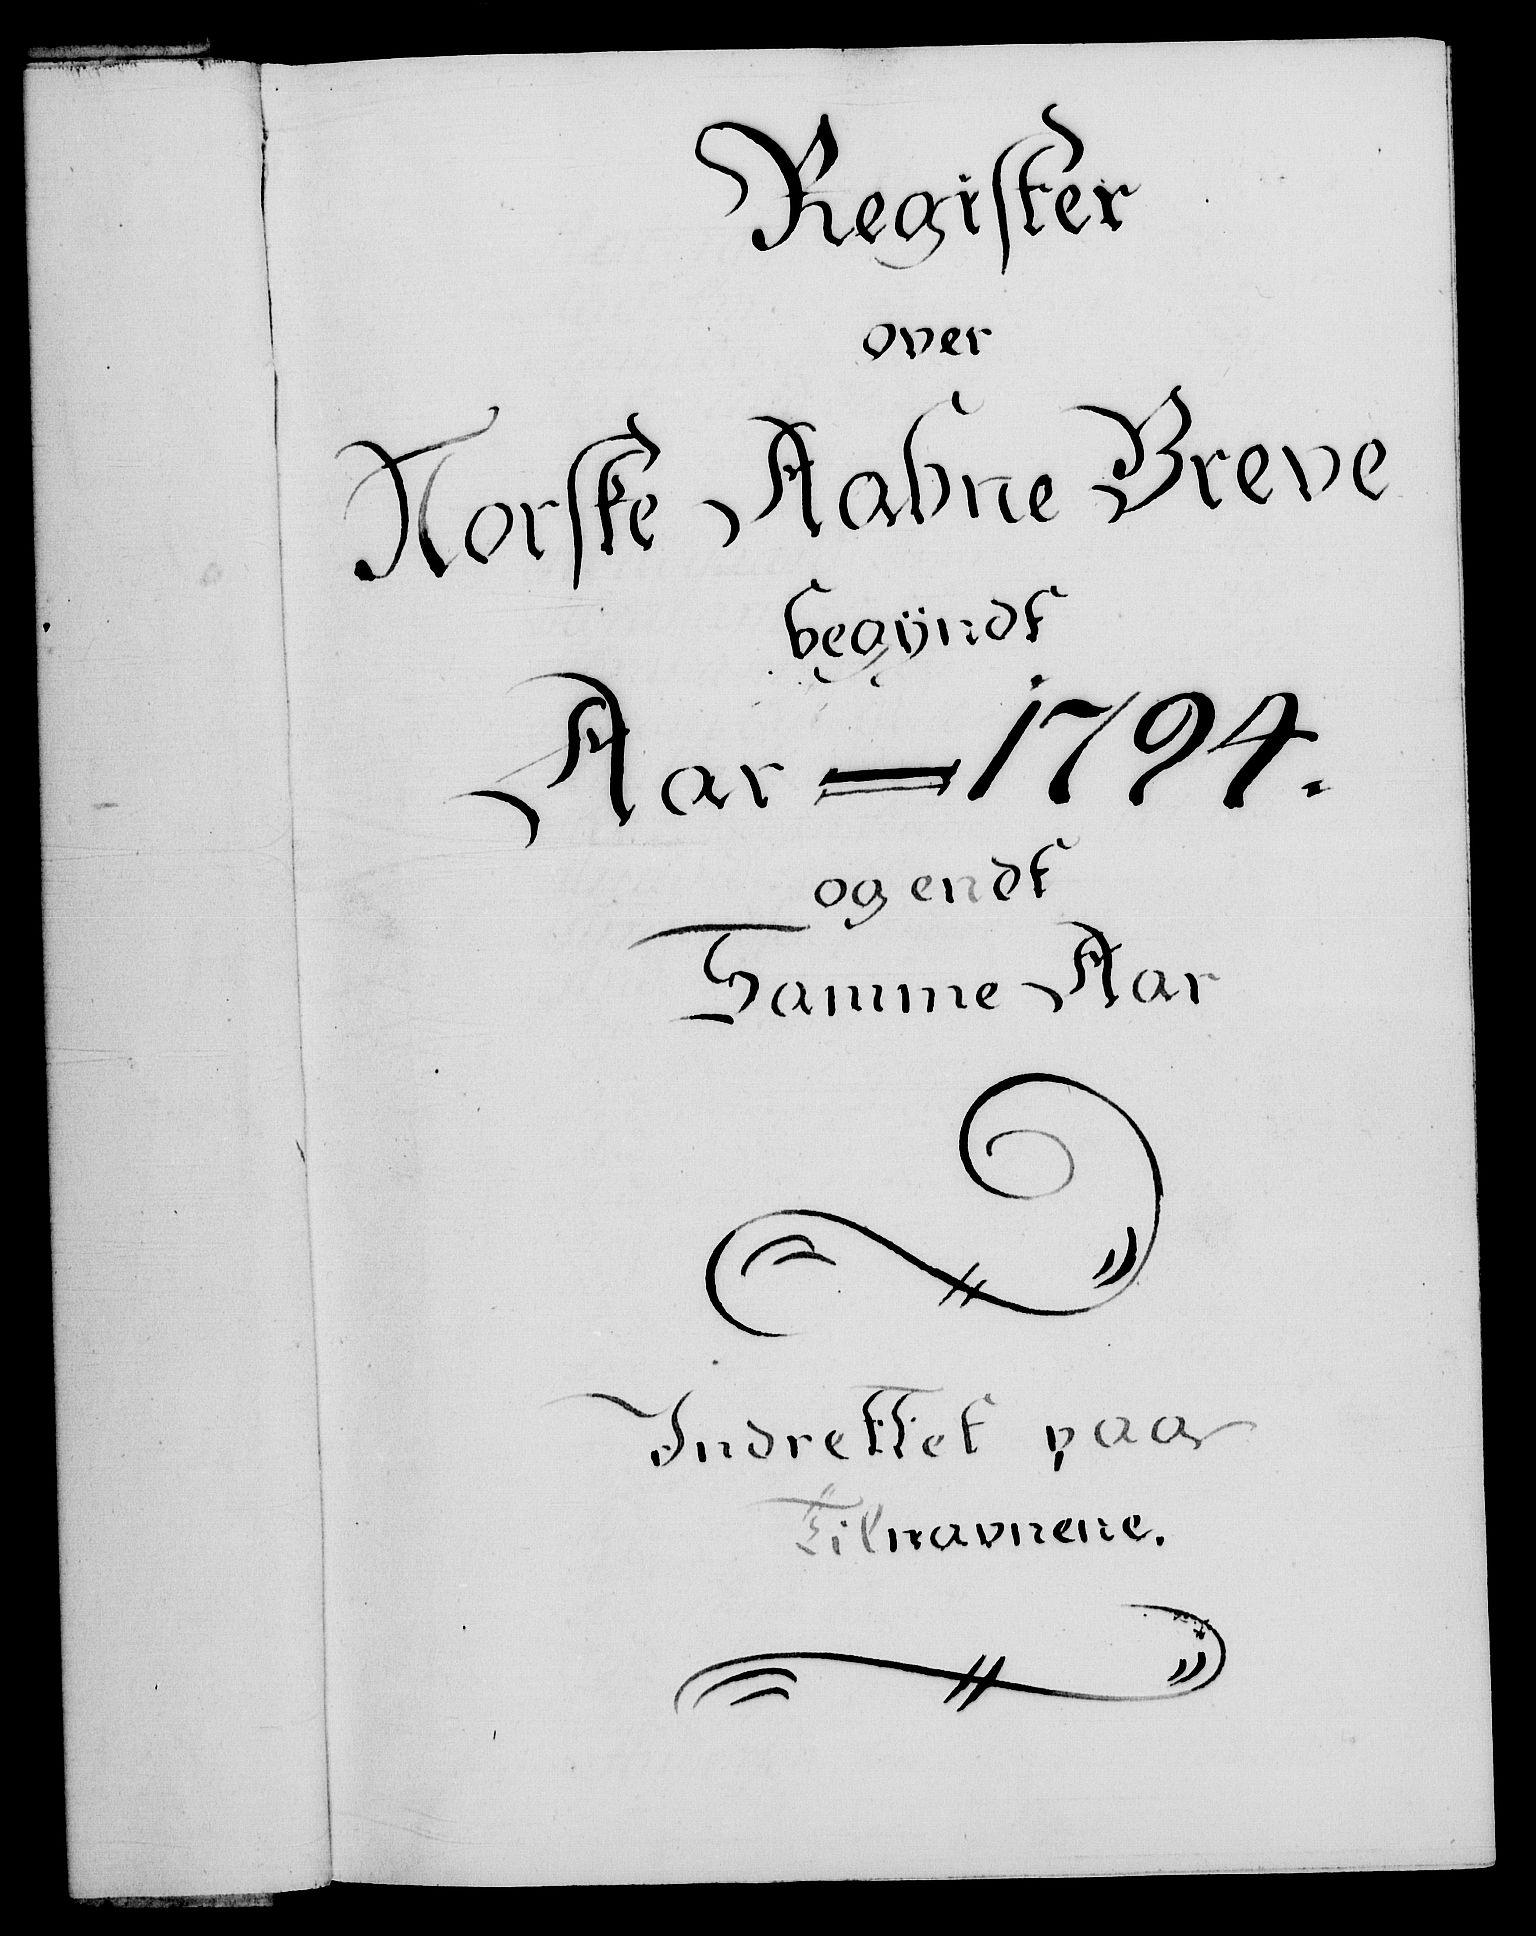 Register
over
Norske Aabne Breve
begÿndt
Aar = 1794.
og endt
Samme Aar
Indrettet paa
Tilnavnene.